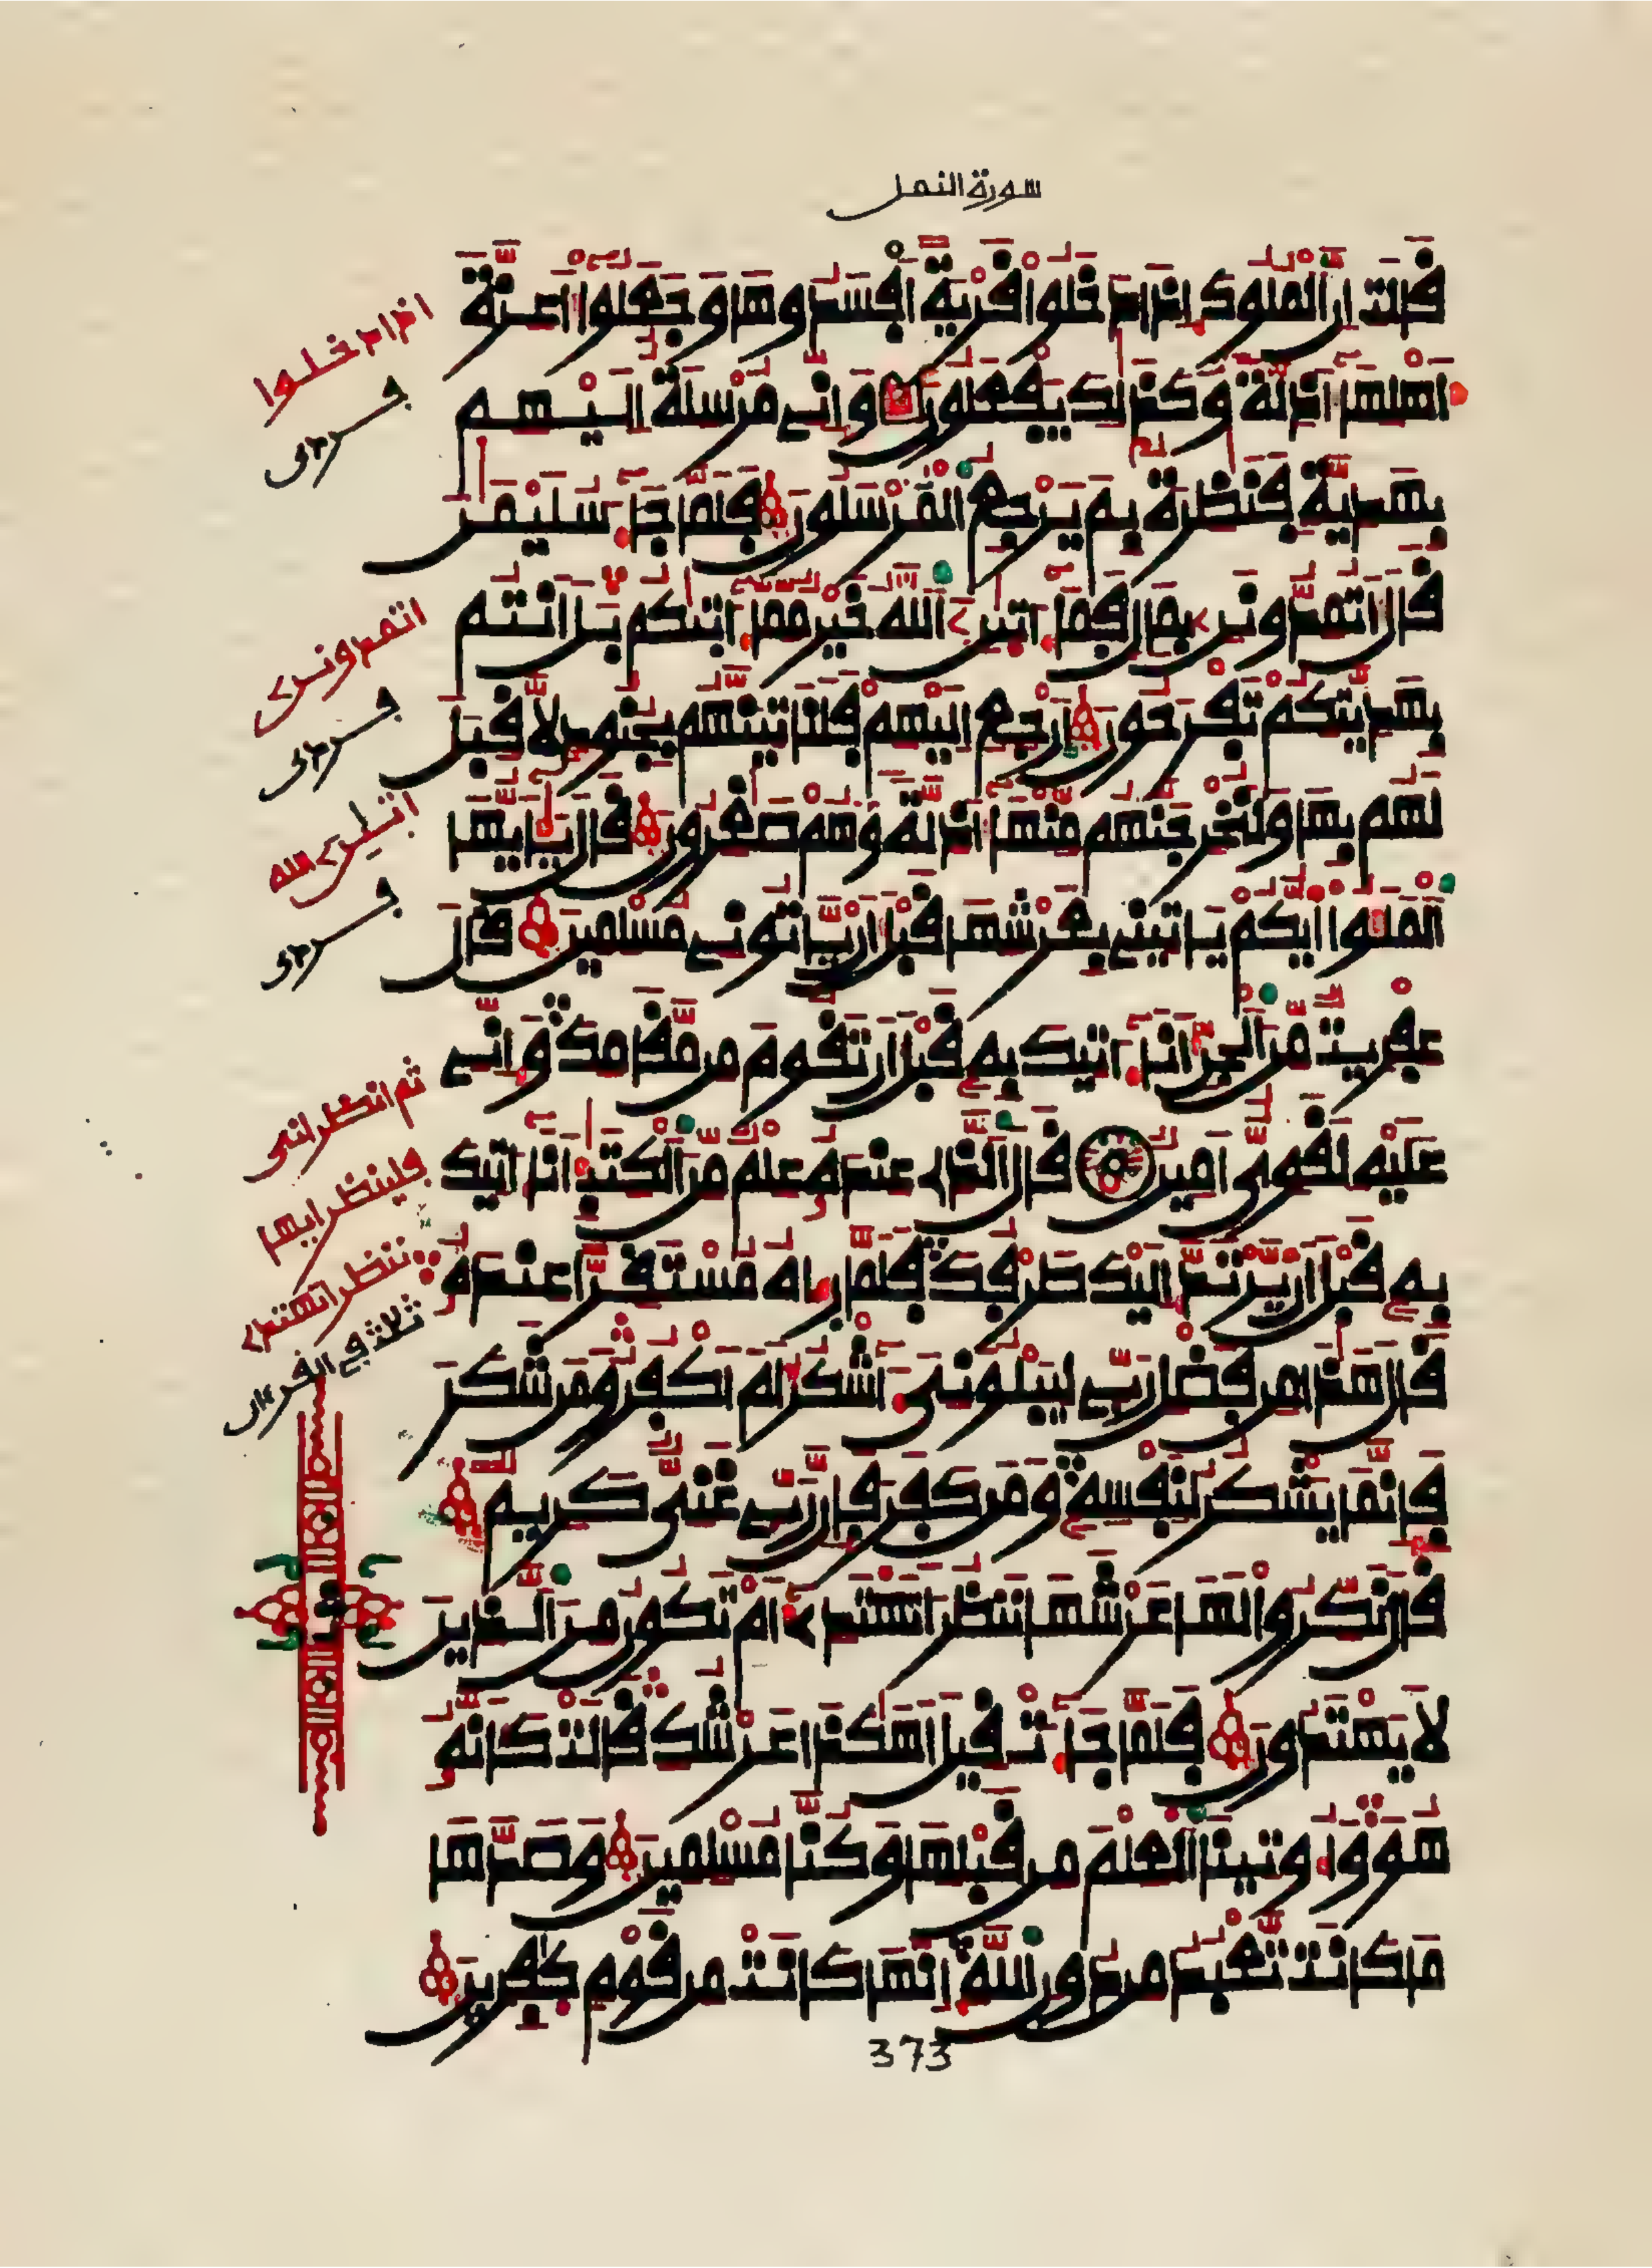 سورة النمل
قالت ان الملوك اذا دخلوا قرية افسدوها وجعلوا اعزة
اهلها اذلة وكذلك يفعلون وانى مرسلة اليهم
بهدية فنظرة بم يرجع المرسلون فلما جاء سليمن
قال اتمدونن بمال فما اتين الله خير مما اتيكم بل انتم
بهديتكم تفرحون ارجع اليهم فلناتينهم بجنود لا قبل
لهم بها ولنخرجنهم منها اذلة وهم صغرون قال يايها
الملوا ايكم ياتينى بعرشها قبل ان ياتونى مسلمين قال
عفريت من الجن انا اتيك به قبل ان تقوم من مقامك وانى
عليه لقوى امين قال الذى عنده علم من الكتب انا اتيك
به قبل ان يرتد اليك طرفك فلما راه مستقرا عنده
قال هذا من فضل ربى ليبلونى اشكر ام اكفر ومن شكر
فانما يشكر لنفسه ومن كفر فان ربى غنى كريم
قال نكروا لها عرشها ننظر اتهتدى ام تكون من الذين
لا يهتدون فلما جاءت قيل اهكذا عرشك قالت كانه
هو واوتينا العلم من قبلها وكنا مسلمين وصدها
ما كانت تعبد من دون الله انها كانت من قوم كفرين
373
اذا دخلوا
اتمدونن
اتين الله
ثم انظر انى
فلينظر ايها
ننظر اتهتدى
ثلث فى القرءان